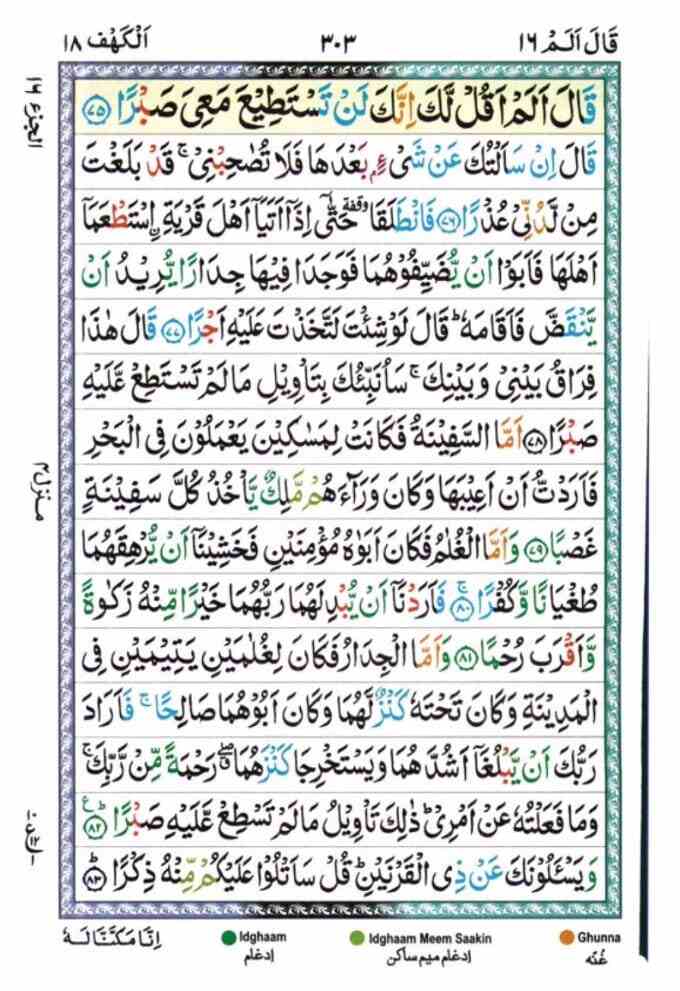 قَالَ اَلَمْ ١٦
٣٠٣
اَلْكَهْف ١٨
الجزء ١٦
قَالَ اَلَمْ اَقُلْ لَّكَ اِنَّكَ لَنْ تَسْتَطِيْعَ مَعِىَ صَبْرًا ﴿٧٥﴾
قَالَ اِنْ سَاَلْتُكَ عَنْ شَىْءٍۭ بَعْدَهَا فَلَا تُصٰحِبْنِىْ ۚ قَدْ بَلَغْتَ
مِنْ لَّدُنِّىْ عُذْرًا ﴿٧٦﴾ فَانْطَلَقَا وقفة حَتّٰٓى اِذَآ اَتَيَآ اَهْلَ قَرْيَةِ ۨاسْتَطْعَمَآ
اَهْلَهَا فَاَبَوْا اَنْ يُّضَيِّفُوْهُمَا فَوَجَدَا فِيْهَا جِدَارًا يُّرِيْدُ اَنْ
يَّنْقَضَّ فَاَقَامَهٗ ؕ قَالَ لَوْ شِئْتَ لَتَّخَذْتَ عَلَيْهِ اَجْرًا ﴿٧٧﴾ قَالَ هٰذَا
فِرَاقُ بَيْنِىْ وَبَيْنِكَ ۚ سَاُنَبِّئُكَ بِتَاْوِيْلِ مَا لَمْ تَسْتَطِعْ عَّلَيْهِ
صَبْرًا ﴿٧٨﴾ اَمَّا السَّفِيْنَةُ فَكَانَتْ لِمَسٰكِيْنَ يَعْمَلُوْنَ فِى الْبَحْرِ
فَاَرَدْتُّ اَنْ اَعِيْبَهَا وَكَانَ وَرَآءَهُمْ مَّلِكٌ يَّاْخُذُ كُلَّ سَفِيْنَةٍ
منزل ٤
غَصْبًا ﴿٧٩﴾ وَاَمَّا الْغُلٰمُ فَكَانَ اَبَوٰهُ مُؤْمِنَيْنِ فَخَشِيْنَآ اَنْ يُّرْهِقَهُمَا
طُغْيَانًا وَّكُفْرًا ﴿٨٠﴾ ۚ فَاَرَدْنَآ اَنْ يُّبْدِلَهُمَا رَبُّهُمَا خَيْرًا مِّنْهُ زَكٰوةً
وَّاَقْرَبَ رُحْمًا ﴿٨١﴾ وَاَمَّا الْجِدَارُ فَكَانَ لِغُلٰمَيْنِ يَتِيْمَيْنِ فِى
الْمَدِيْنَةِ وَكَانَ تَحْتَهٗ كَنْزٌ لَّهُمَا وَكَانَ اَبُوْهُمَا صَالِحًا ۚ فَاَرَادَ
رَبُّكَ اَنْ يَّبْلُغَآ اَشُدَّهُمَا وَيَسْتَخْرِجَا كَنْزَهُمَا ۖۗ رَحْمَةً مِّنْ رَّبِّكَ ۚ
وَمَا فَعَلْتُهٗ عَنْ اَمْرِىْ ؕ ذٰلِكَ تَاْوِيْلُ مَا لَمْ تَسْطِعْ عَّلَيْهِ صَبْرًا ﴿٨٢﴾ ؕ ع
وَيَسْـَٔلُوْنَكَ عَنْ ذِى الْقَرْنَيْنِ ؕ قُلْ سَاَتْلُوْا عَلَيْكُمْ مِّنْهُ ذِكْرًا ﴿٨٣﴾ ؕ
اِنَّا مَكَّنَّا لَهٗ
Idghaam
ادغام
Idghaam Meem Saakin
ادغام میم ساکن
Ghunna
غُنّه